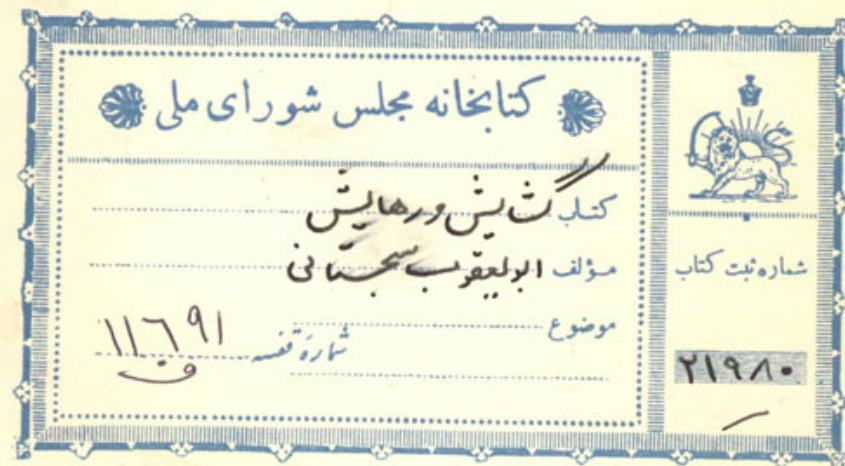 کتابخانه مجلس شورای ملی
کتاب گشایش و رهایش
مؤلف ابولیعقوب سجستانی
موضوع
شمارهٔ قفسه ۱۱۶۹۱
ف
شماره ثبت کتاب
۲۱۹۸۰